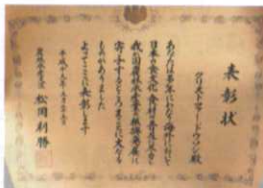 表彰状
クリストファードウソン殿
あなたは多年にわたり海外において
日本の食文化・食材の普及に努め
我が国農林水産業・食品産業の発展に
寄与するところまことに大なる
ものがありました
よってここに表彰します
農林水産大臣 松岡利勝